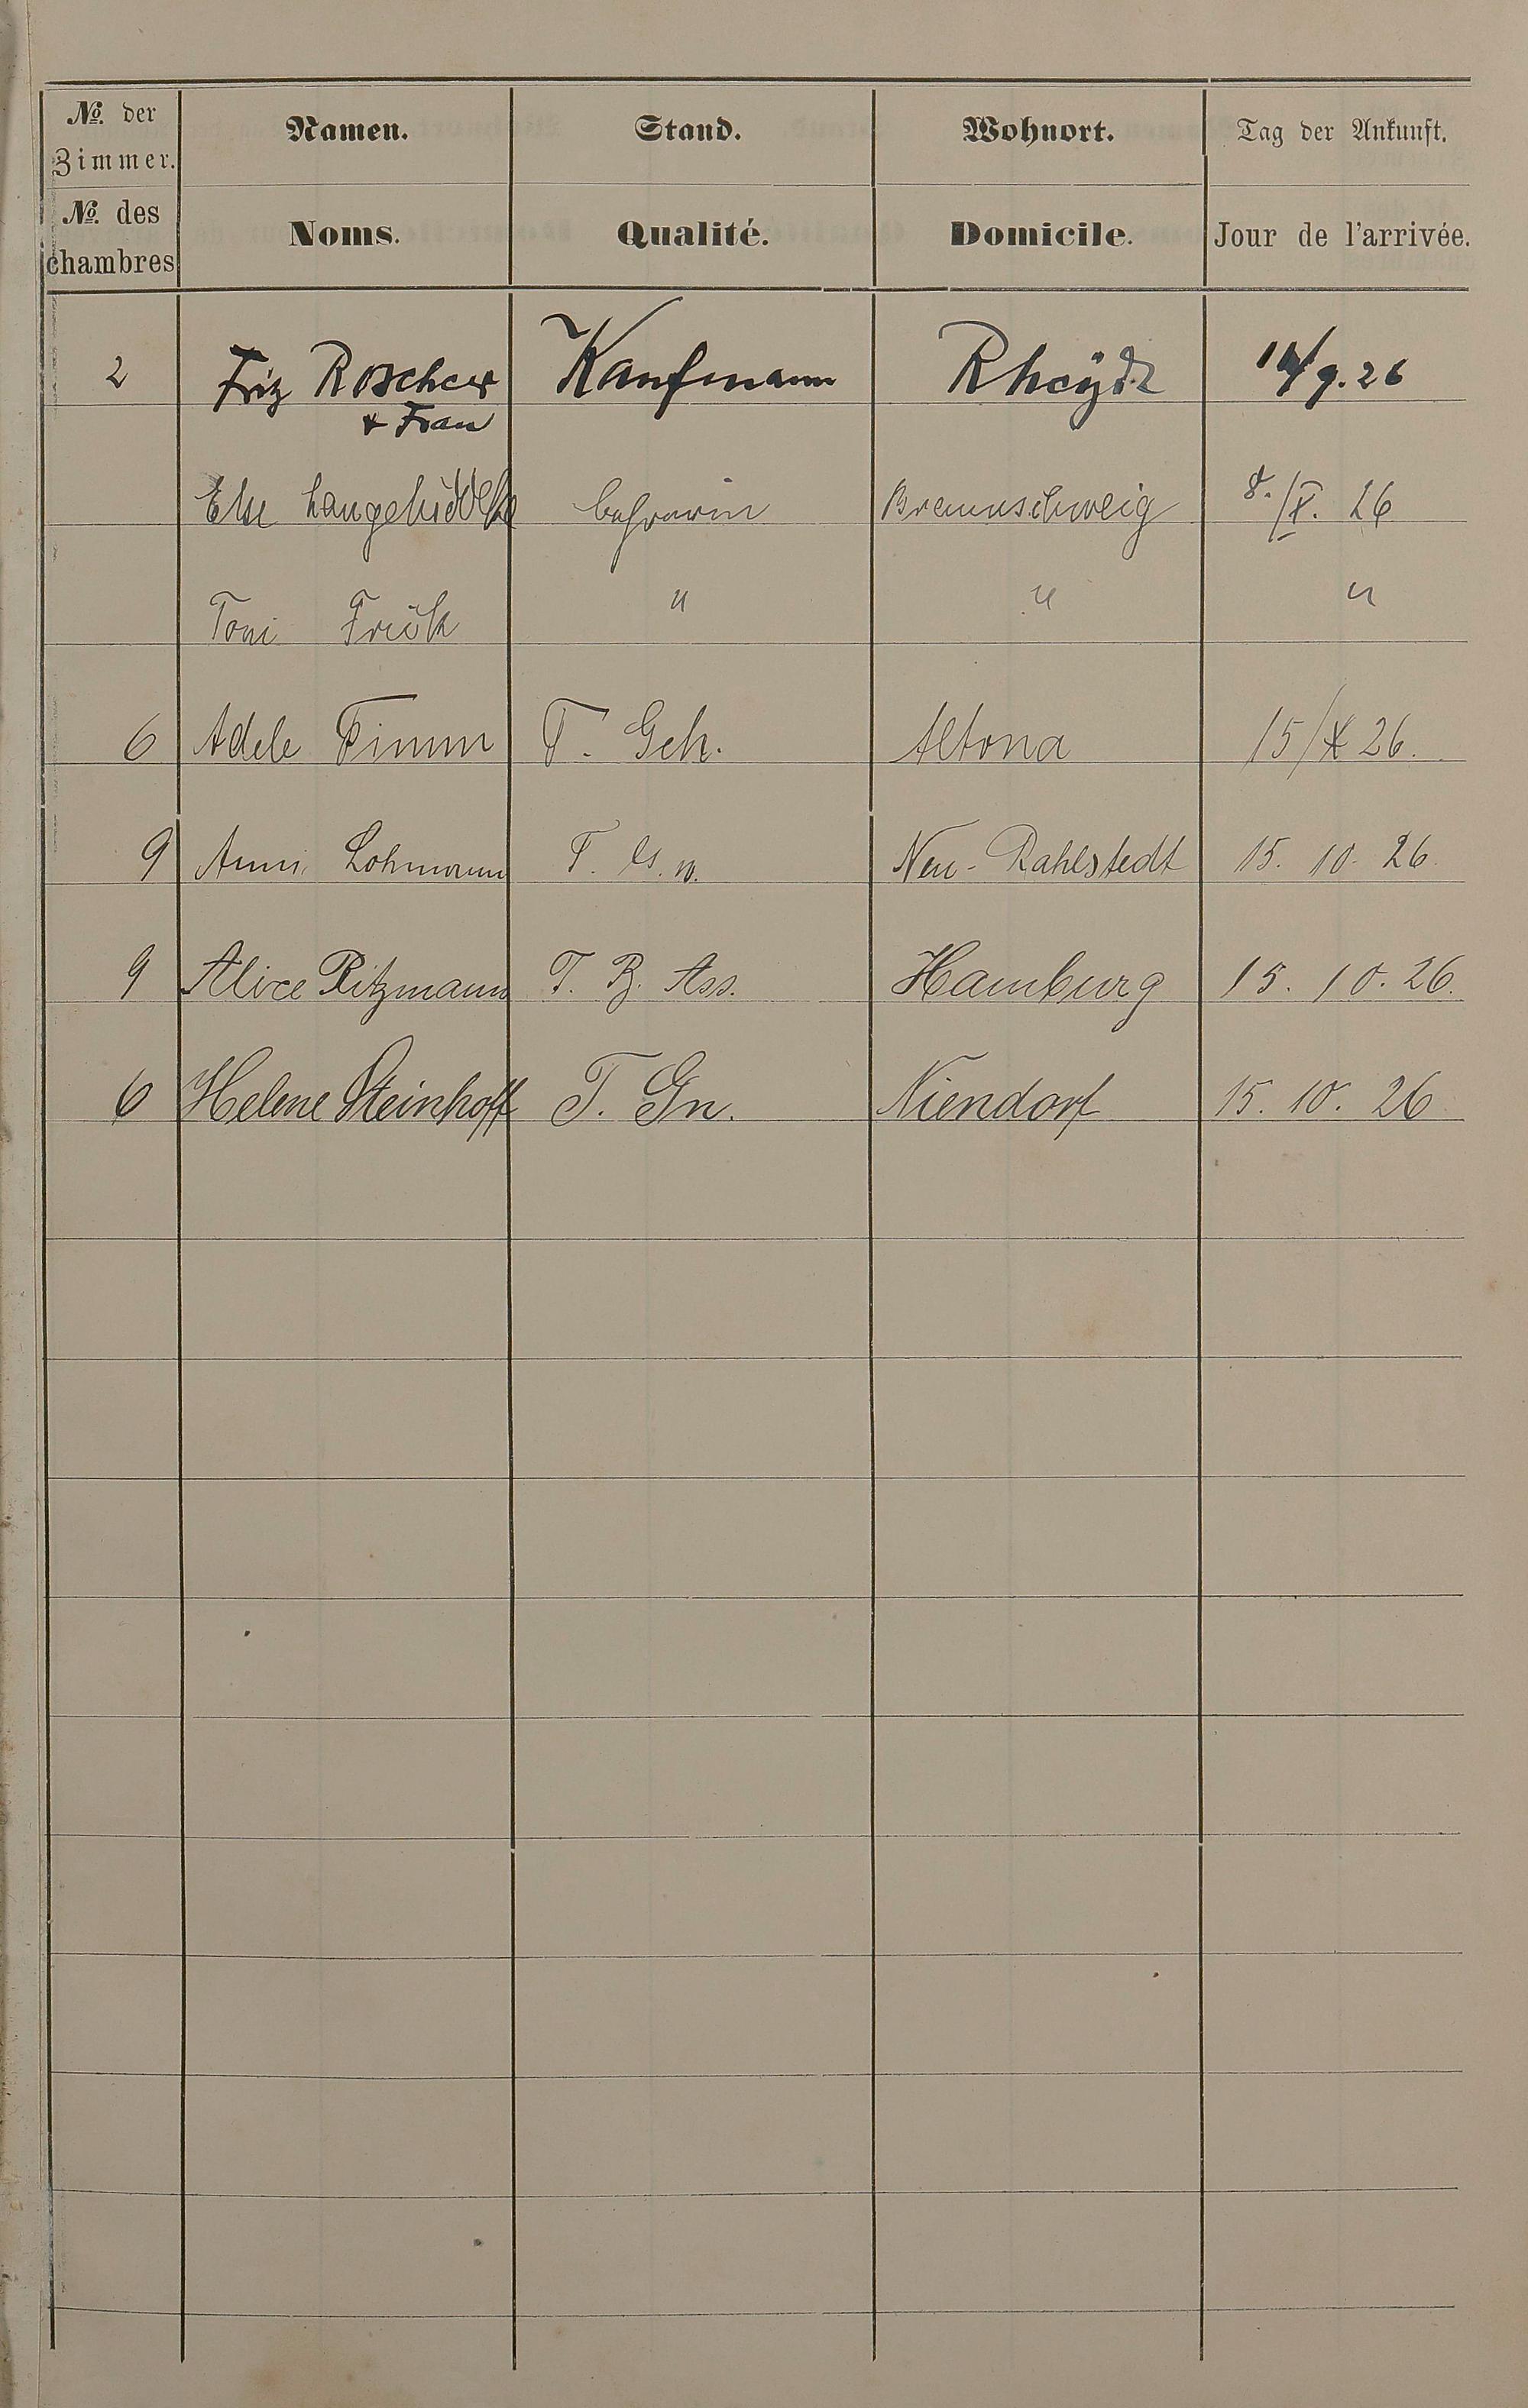 № der Zimmer. Namen. Stand. Wohnort. Tag der Ankunft.
№ des chambres Noms. Qualité. Domicile. Jour de l'arrivée.
2 Friz Roscher Kaufmann Rheydt 14/9.26
+ Frau
Else Lehrerin Braunschweig 8./X. 26
Toni Frick " " "
6 Adele Timm T. Geh. Altona 15/X 26.
9 Anni Lohmann T. Neu-Rahlstedt 15. 10. 26.
9 Alice Ritzmann T. B. Ass. Hamburg 15. 10. 26.
6 Helene Steinhoff T. Gn. Niendorf 15. 10. 26